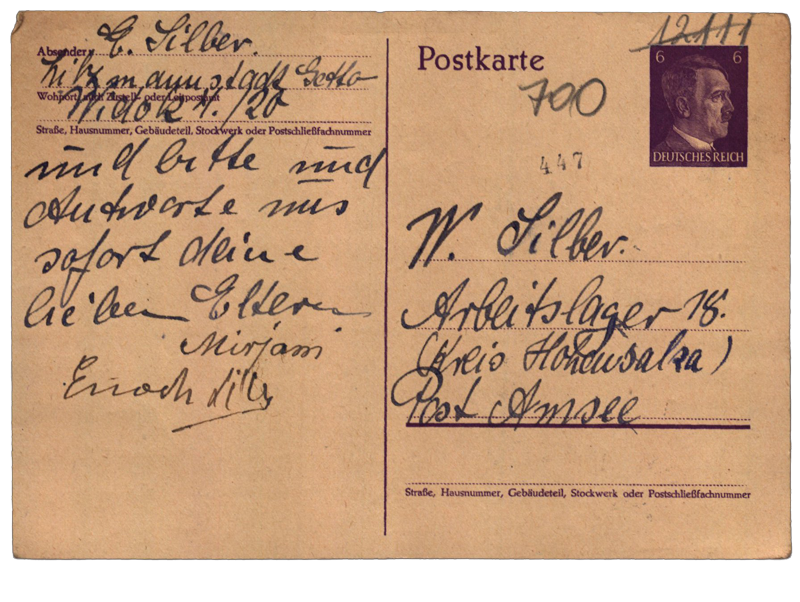 Absender: E. Silber.
Litzmannstadt Getto
Wohnort, auch Zustell- oder Leitpostamt
1./20
Straße, Hausnummer, Gebäudeteil, Stockwerk oder Postschließfachnummer
und bitte und
Antworte uns
sofort deine
lieben Eltern
Mirjam
Enoch
Postkarte
12111
6 6
DEUTSCHES REICH
700
447
W. Silber.
Arbeitslager 18.
(Kreis Hohensalza)
Post Amsee
Straße, Hausnummer, Gebäudeteil, Stockwerk oder Postschließfachnummer